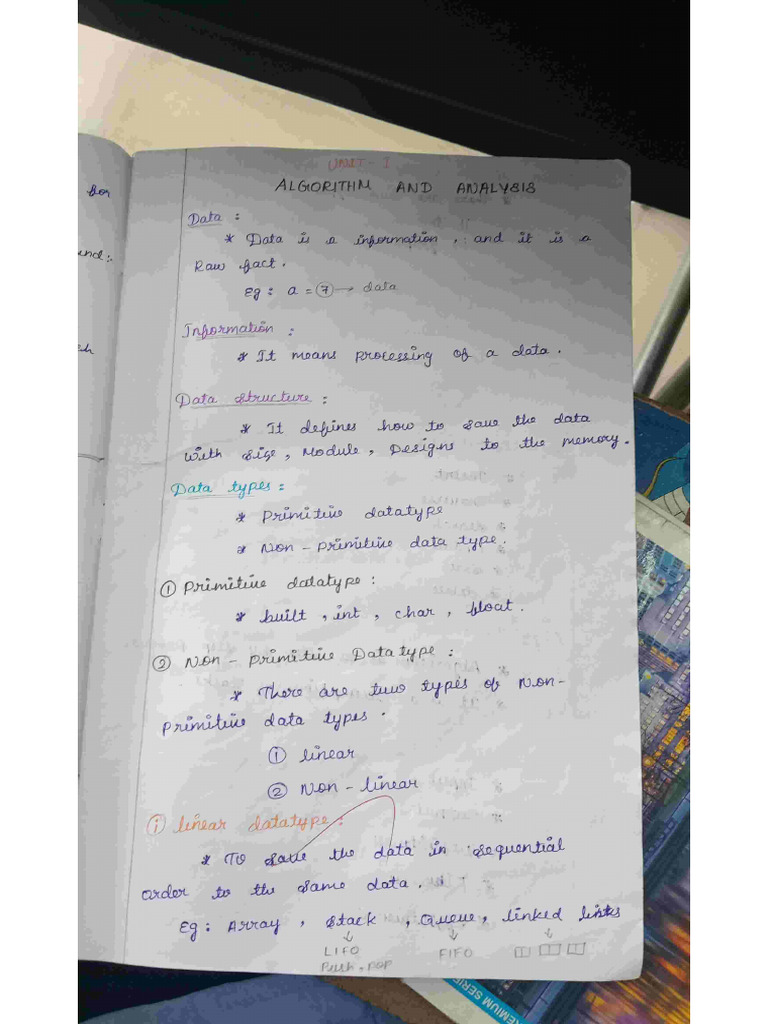 for
und:-
UNIT-I
ALGORITHM AND ANALYSIS
Data :
* Data is a information, and it is a
Raw fact.
Eg: a = 7 → data
Information :
* It means processing of a data.
Data structure :
* It defines how to save the data
with size, Module, Designs to the memory.
Data types :
* Primitive datatype
* Non - primitive data type.
① Primitive datatype :
* built, int, char, float.
② Non - Primitive Datatype :
* There are two types of Non-
Primitive data types.
① linear
② Non - linear
i linear datatype :
* To save the data in sequential
order to the same data.
Eg: Array, Stack, Queue, linked lists
↓ ↓ ↓
LIFO FIFO
Push, POP
PREMIUM SERIES